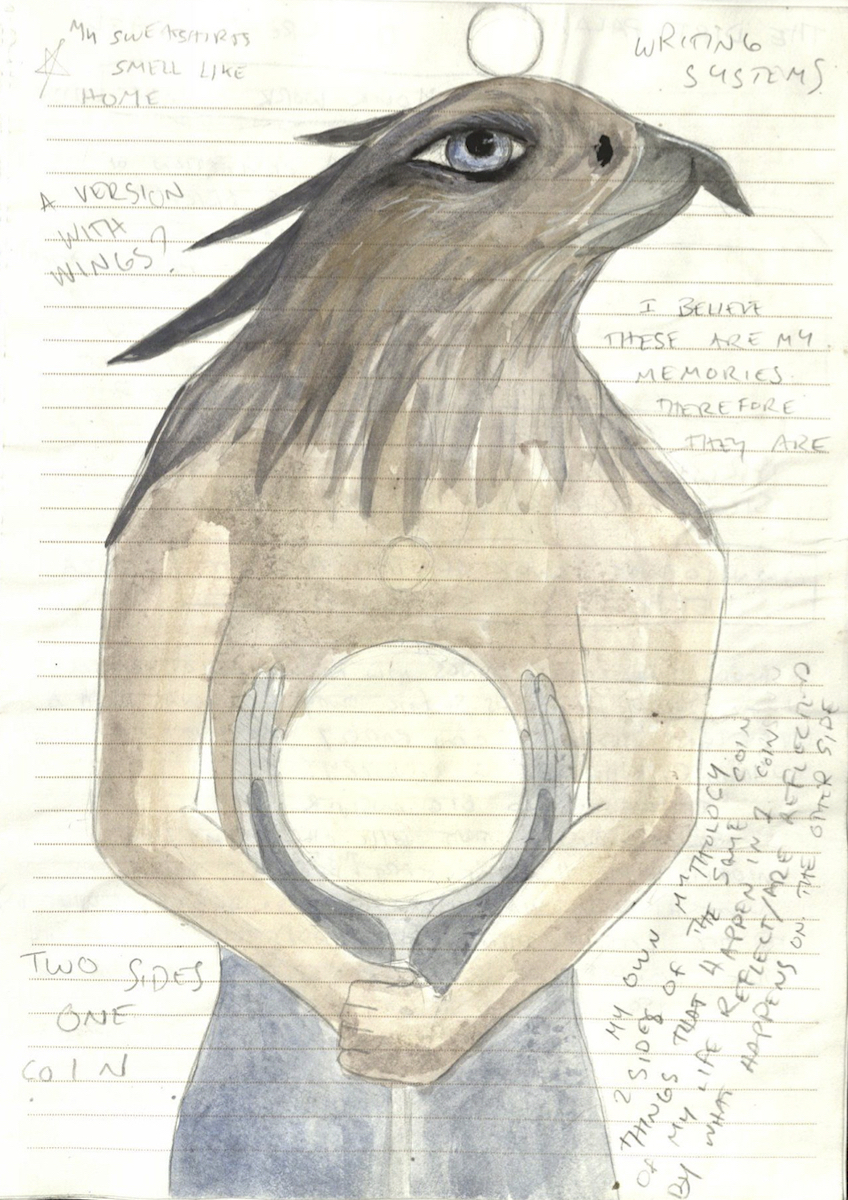 MY SWEATSHIRTS
SMELL LIKE
HOME
WRITING
SYSTEMS
A VERSION
WITH
WINGS?
I BELIEVE
THESE ARE MY
MEMORIES
THEREFORE
THEY ARE
TWO SIDES
ONE
COIN
MY OWN MYTHOLOGY
2 SIDES OF THE SAME COIN
THINGS THAT HAPPEN IN 1 COIN
OF MY LIFE REFLECT/ARE REFLECTED
BY WHAT HAPPENS ON THE OTHER SIDE